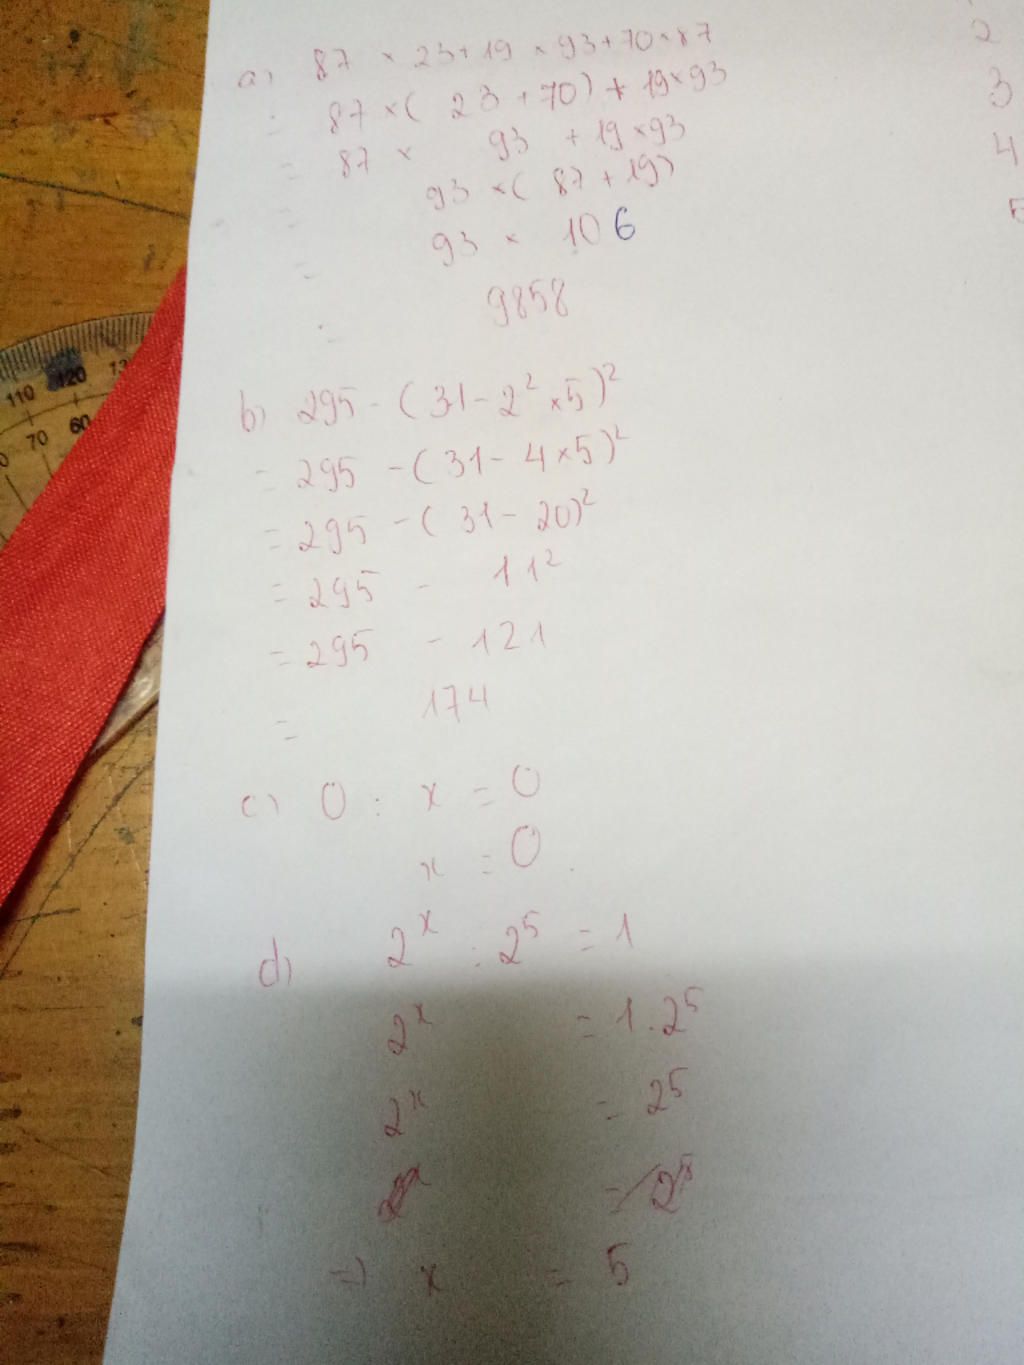 a) 87 × 23 + 19 × 93 + 70 × 87
= 87 × ( 23 + 70 ) + 19 × 93
= 87 × 93 + 19 × 93
= 93 × ( 87 + 19 )
= 93 × 106
= 9858
b) 295 - ( 31 - 2² × 5 )²
= 295 - ( 31 - 4 × 5 )²
= 295 - ( 31 - 20 )²
= 295 - 11²
= 295 - 121
= 174
c) 0 : x = 0
x = 0
d) 2ˣ : 2⁵ = 1
2ˣ = 1 . 2⁵
2ˣ = 2⁵
=> x = 5
2
3
4
110
120
70
60